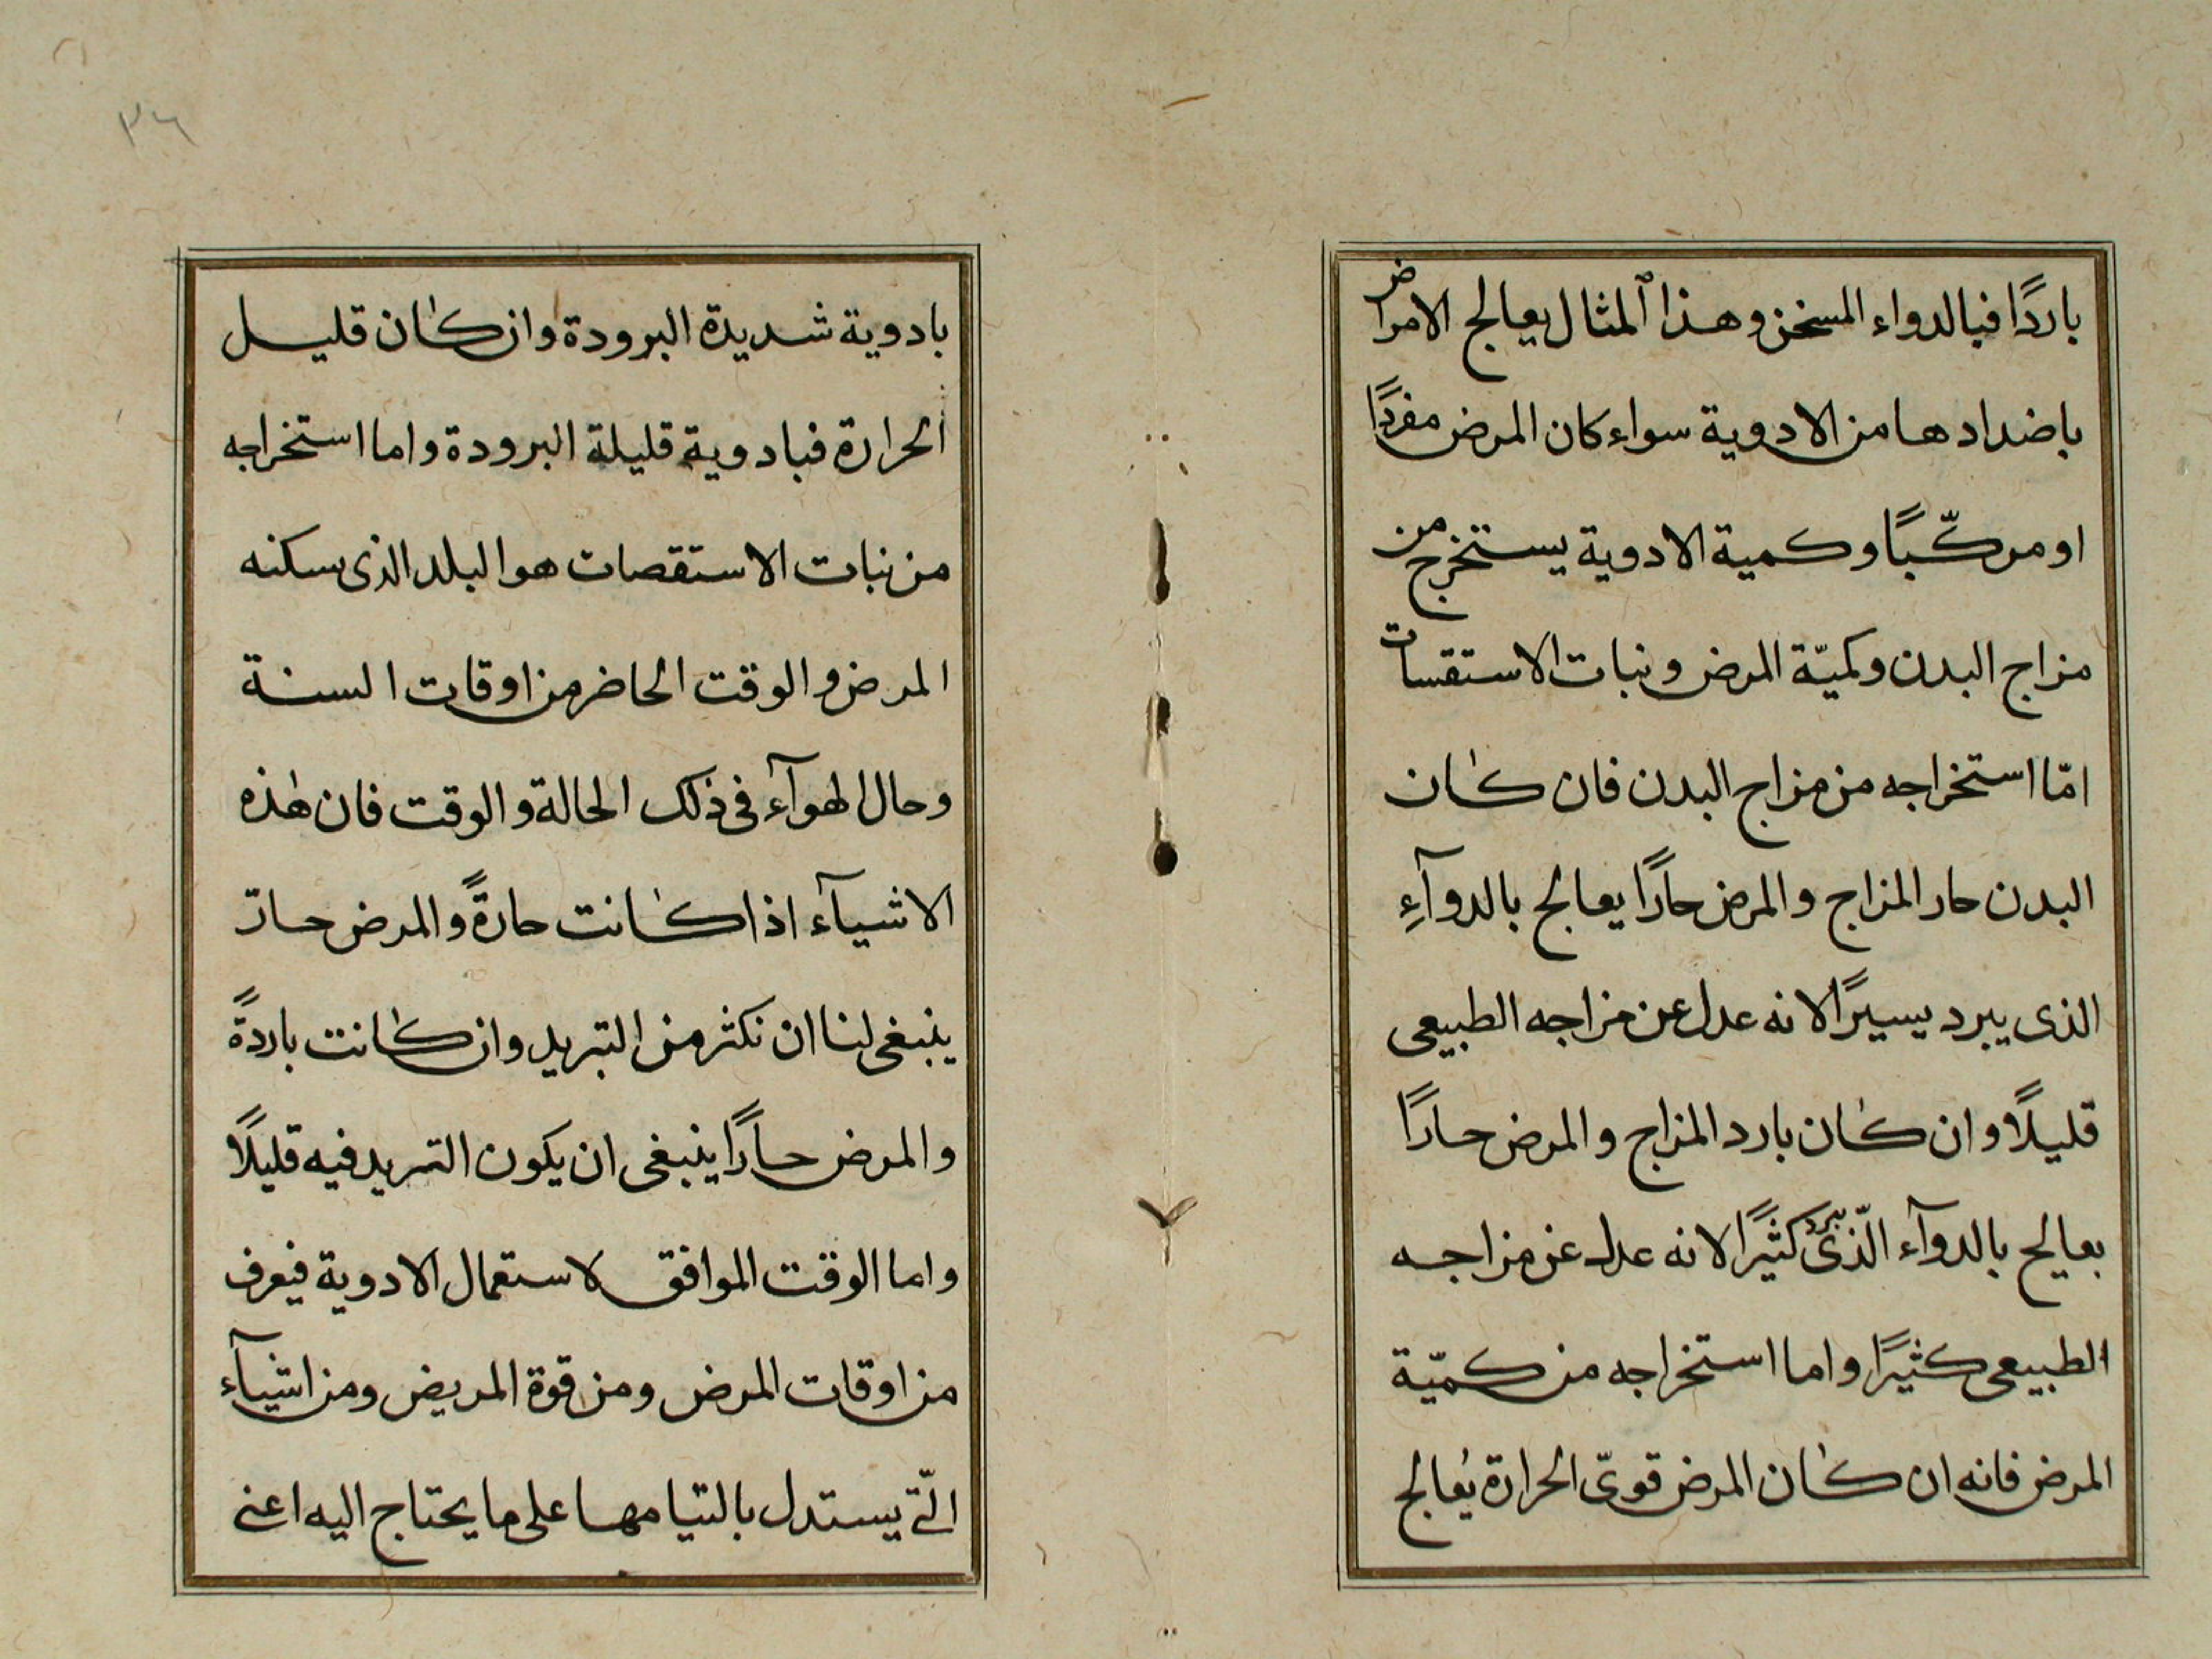 باردًا فبالدواء المسخن وهذا المثال يعالج الامراض
باضدادها من الادوية سواء كان المرض مفردًا
او مركّبًا وكمية الادوية يستخرج من
مزاج البدن وكميّة المرض ونبات الاستقسات
امّا استخراجه من مزاج البدن فان كان
البدن حار المزاج والمرض حارًا يعالج بالدوآءِ
الذى يبرد يسيرًا لانه عدل عن مزاجه الطبيعى
قليلًا وان كان بارد المزاج والمرض حارًا
بعالج بالدوآء الّذى يبرد كثيرًا لانه عدل عن مزاجه
الطبيعى كثيرًا واما استخراجه من كميّة
المرض فانه ان كان المرض قوىّ الحرارة يُعالج
٣٦
بادوية شديدة البرودة وان كان قليل
الحرارة فبادوية قليلة البرودة واما استخراجه
من نبات الاستقصات هو البلد الذى سكنه
المرض والوقت الحاضر من اوقات السنة
وحال الهوآء فى ذلك الحالة والوقت فان هٰذه
الاشيآء اذا كانت حارةً والمرض حارّ
ينبغى لنا ان نكثر من التبريد وان كانت باردةً
والمرض حارًا ينبغى ان يكون التبريد فيه قليلًا
واما الوقت الموافق لاستعمال الادوية فيعرف
من اوقات المرض ومن قوة المريض ومن اشيآء
الّتى يستدل بالتيامها على ما يحتاج اليه اعنى